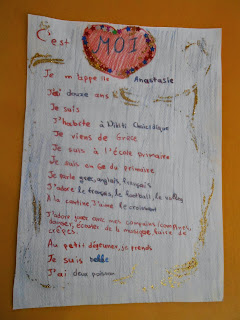 C'est MOI
Je m'appelle Anastasie
J'ai douze ans
Je suis
J'habite à Nikiti Chalcidique
Je viens de Grèse
Je suis à l'école primaire
Je suis en 6e du primaire
Je parle grec, anglais, français
J'adore le français, le football, le volley
A la cantine, J'aime le croissant
J'adore jouer avec mes copains/copines,
danser, écouter de la musique, faire de
crêpes.
Au petit déjeuner, je prends
Je suis belle
J'ai deux poissons